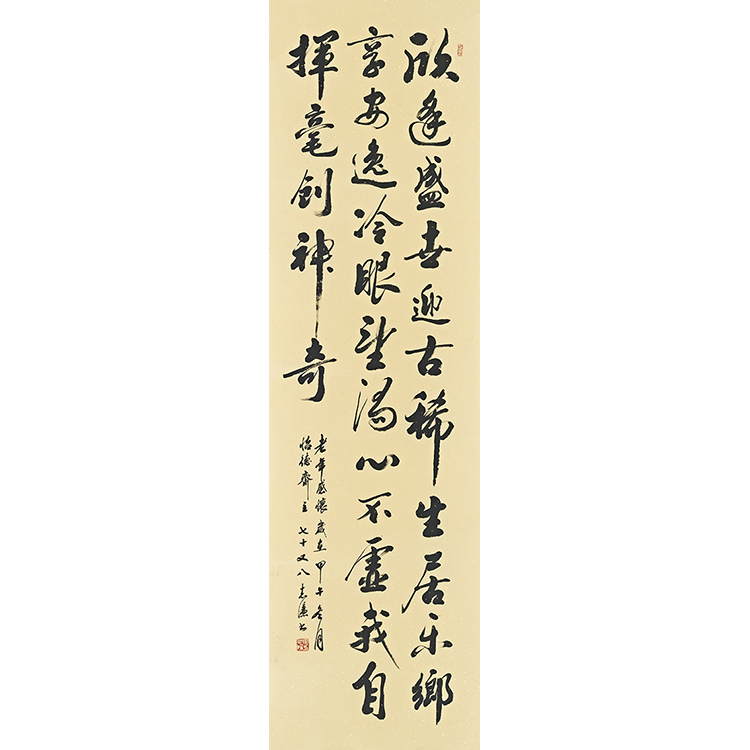 欣逢盛世迎古稀生居乐鄉
享安逸冷眼望濁心不虚我自
揮毫创神奇
老年感懷歲在甲午冬月
怡德齋主七十又八志书